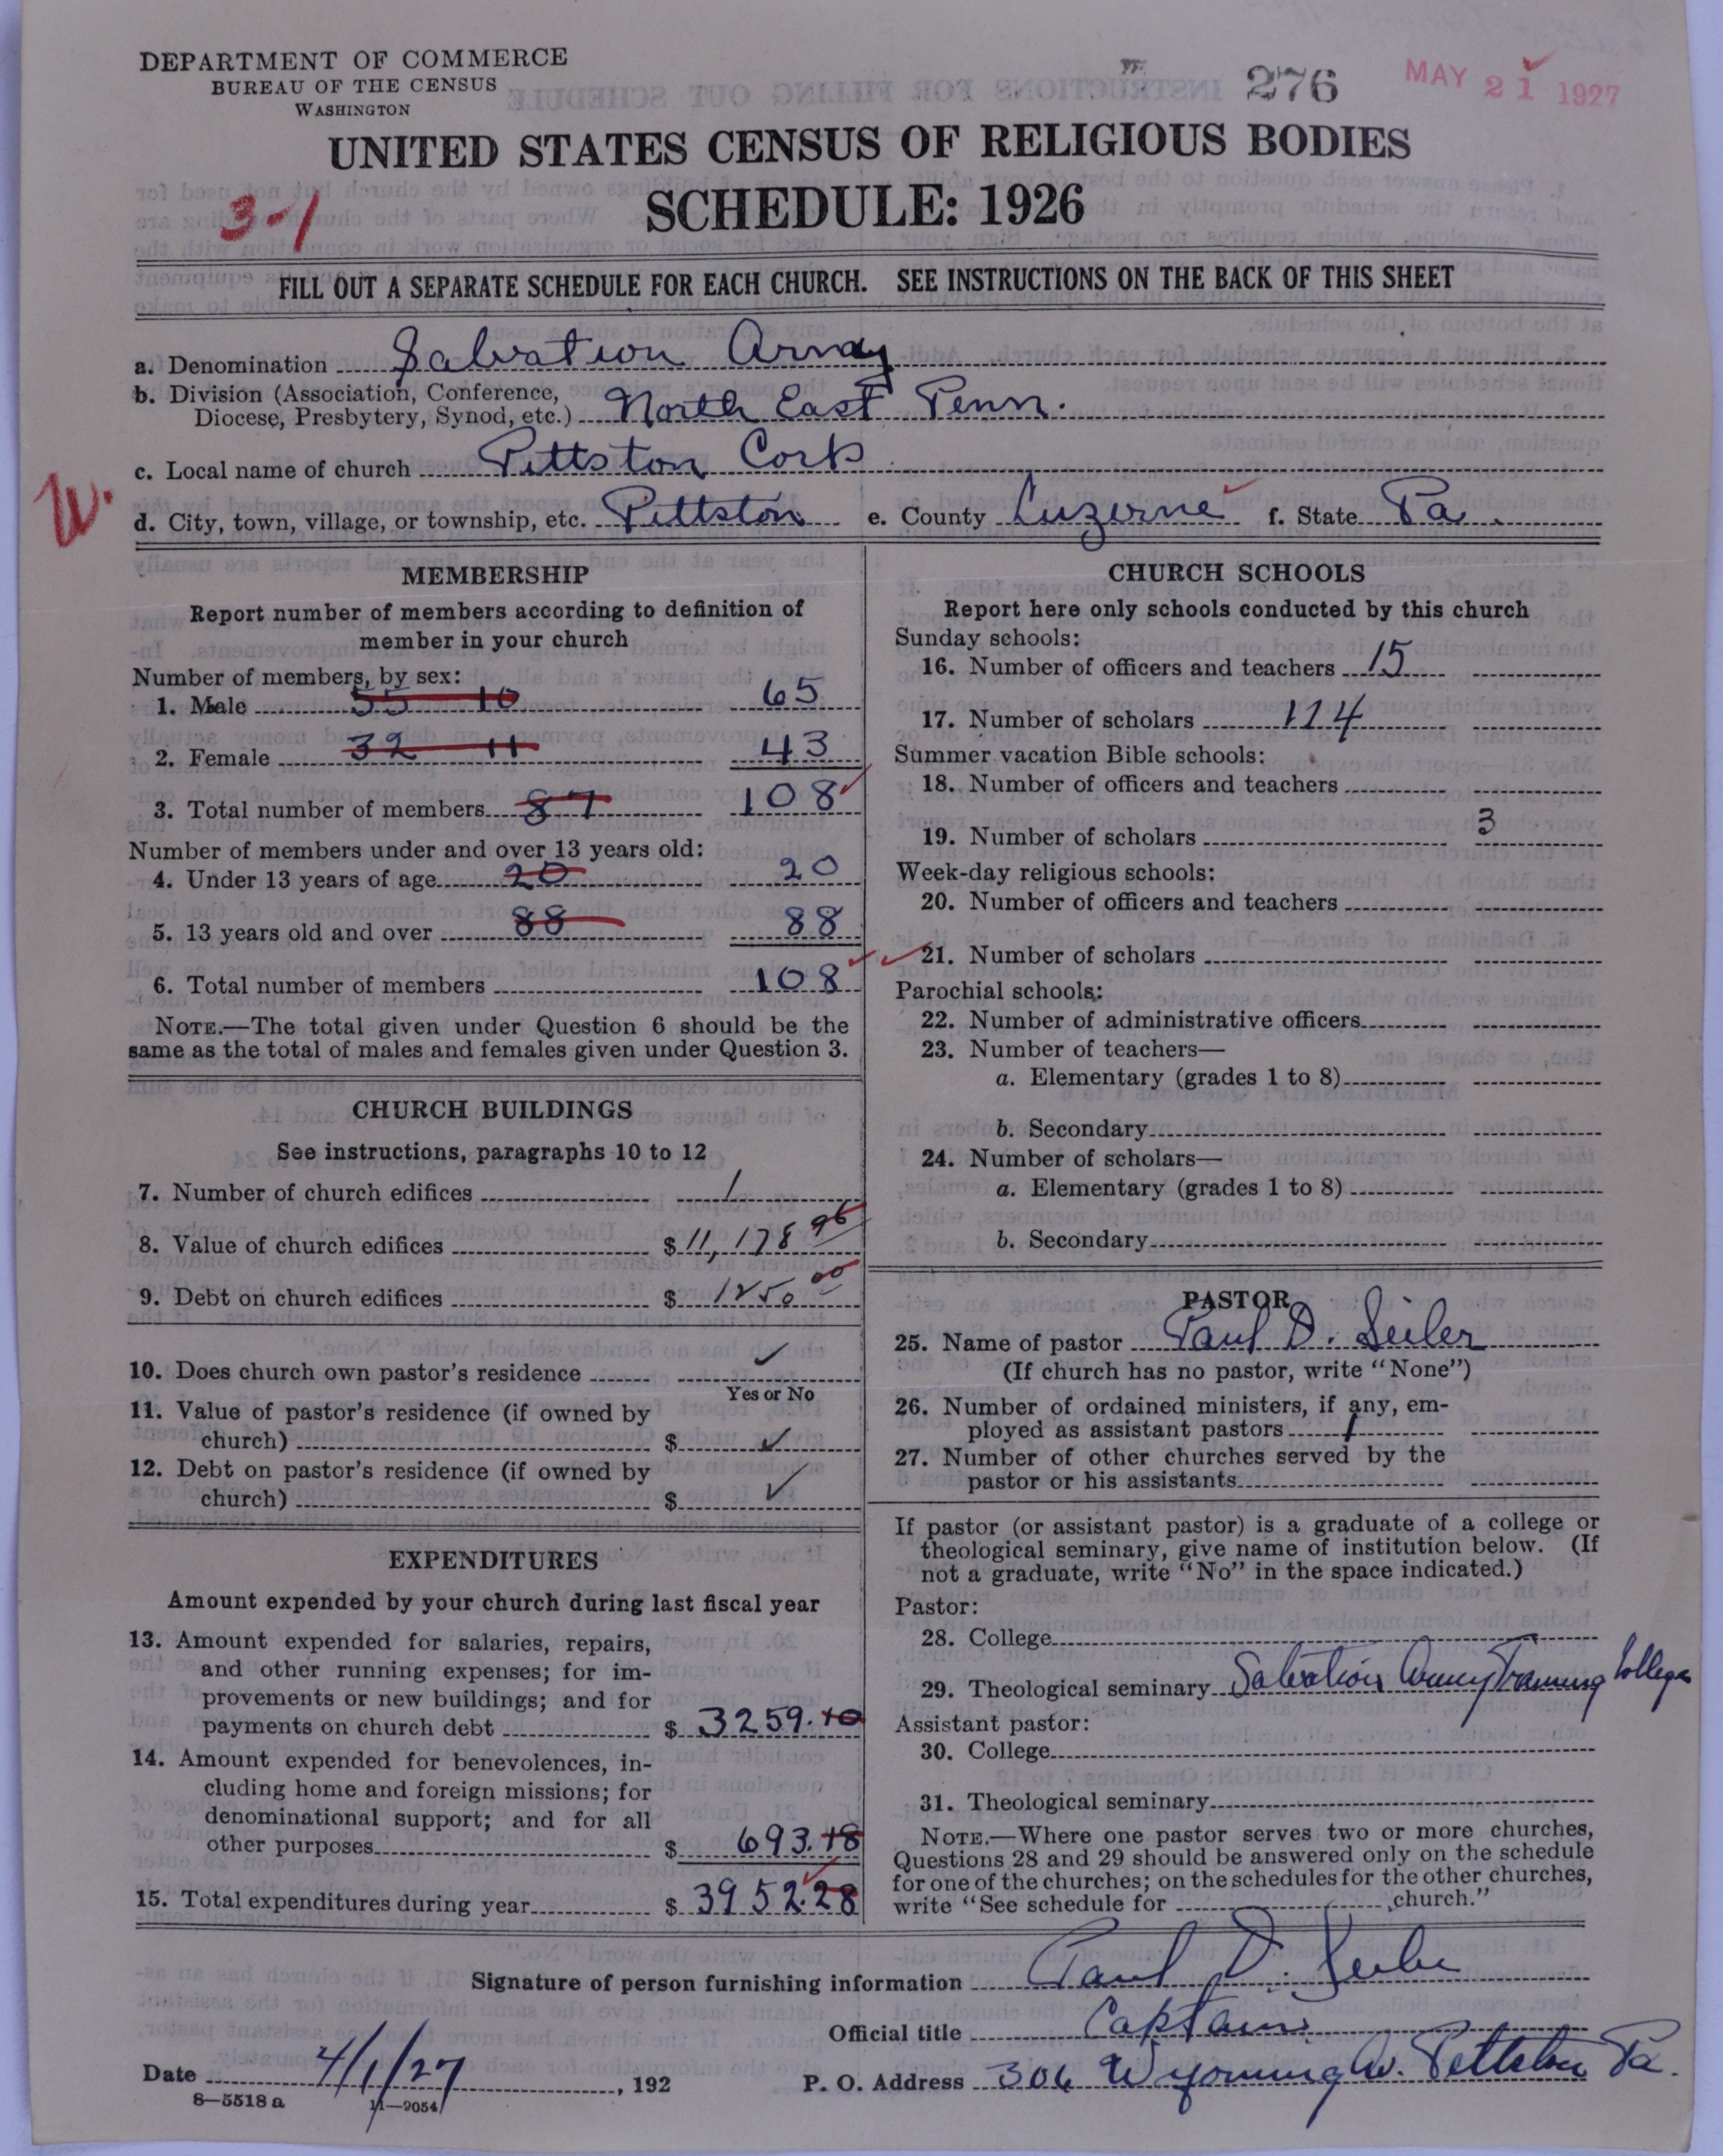 DEPARTMENT OF COMMERCE
BUREAU OF THE CENSUS
WASHINGTON
276
MAY 21 1927
UNITED STATES CENSUS OF RELIGIOUS BODIES
3-1
SCHEDULE: 1926
FILL OUT A SEPARATE SCHEDULE FOR EACH CHURCH. SEE INSTRUCTIONS ON THE BACK OF THIS SHEET
a. Denomination Salvation Army
b. Division (Association, Conference,
Diocese, Presbytery, Synod, etc.) North East Penn.
c. Local name of church Pittston Corps
W.
d. City, town, village, or township, etc. Pittston e. County Luzerne f. State Pa.
MEMBERSHIP
Report number of members according to definition of
member in your church
Number of members, by sex:
1. Male 55 10 65
2. Female 32 11 43
3. Total number of members 87 108
Number of members under and over 13 years old:
4. Under 13 years of age 20 20
5. 13 years old and over 88 88
6. Total number of members 108
NOTE.—The total given under Question 6 should be the
same as the total of males and females given under Question 3.
CHURCH BUILDINGS
See instructions, paragraphs 10 to 12
7. Number of church edifices 1
8. Value of church edifices $ 11,178 96
9. Debt on church edifices $ 1250 00
10. Does church own pastor's residence ✓
Yes or No
11. Value of pastor's residence (if owned by
church) $ ✓
12. Debt on pastor's residence (if owned by
church) $ ✓
EXPENDITURES
Amount expended by your church during last fiscal year
13. Amount expended for salaries, repairs,
and other running expenses; for im-
provements or new buildings; and for
payments on church debt $ 3259.10
14. Amount expended for benevolences, in-
cluding home and foreign missions; for
denominational support; and for all
other purposes $ 693.18
15. Total expenditures during year $ 3952.28
CHURCH SCHOOLS
Report here only schools conducted by this church
Sunday schools:
16. Number of officers and teachers 15
17. Number of scholars 114
Summer vacation Bible schools:
18. Number of officers and teachers
19. Number of scholars 3
Week-day religious schools:
20. Number of officers and teachers
21. Number of scholars
Parochial schools:
22. Number of administrative officers
23. Number of teachers—
a. Elementary (grades 1 to 8)
b. Secondary
24. Number of scholars—
a. Elementary (grades 1 to 8)
b. Secondary
PASTOR
25. Name of pastor Paul D. Seiler
(If church has no pastor, write "None")
26. Number of ordained ministers, if any, em-
ployed as assistant pastors 1
27. Number of other churches served by the
pastor or his assistants
If pastor (or assistant pastor) is a graduate of a college or
theological seminary, give name of institution below. (If
not a graduate, write "No" in the space indicated.)
Pastor:
28. College
29. Theological seminary Salvation Army Training College
Assistant pastor:
30. College
31. Theological seminary
NOTE.—Where one pastor serves two or more churches,
Questions 28 and 29 should be answered only on the schedule
for one of the churches; on the schedules for the other churches,
write "See schedule for church."
Signature of person furnishing information Paul D. Seiler
Official title Captain
Date 4/1/27, 192
P. O. Address 306 Wyoming Av. Pittston Pa.
8—5518 a
11—9054